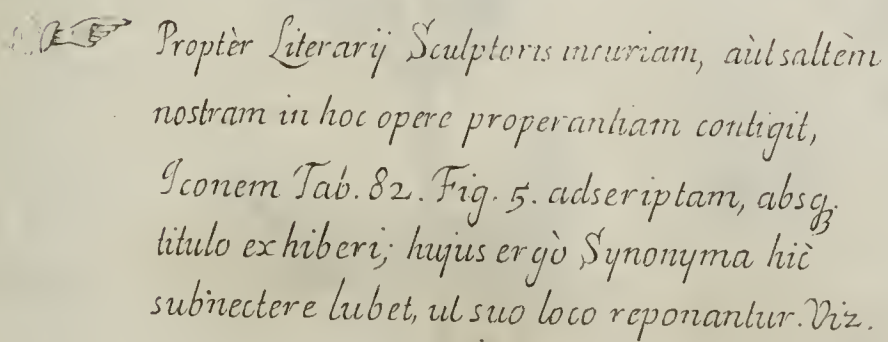 Proptèr Literarij Sculptoris incuriam, aùt saltèm
nostram in hoc opere properantiam contigit,
Iconem Tab. 82. Fig. 5. adscriptam, absq;
titulo exhiberi; hujus ergò Synonyma hìc
subnectere lubet, ut suo loco reponantur. Viz.